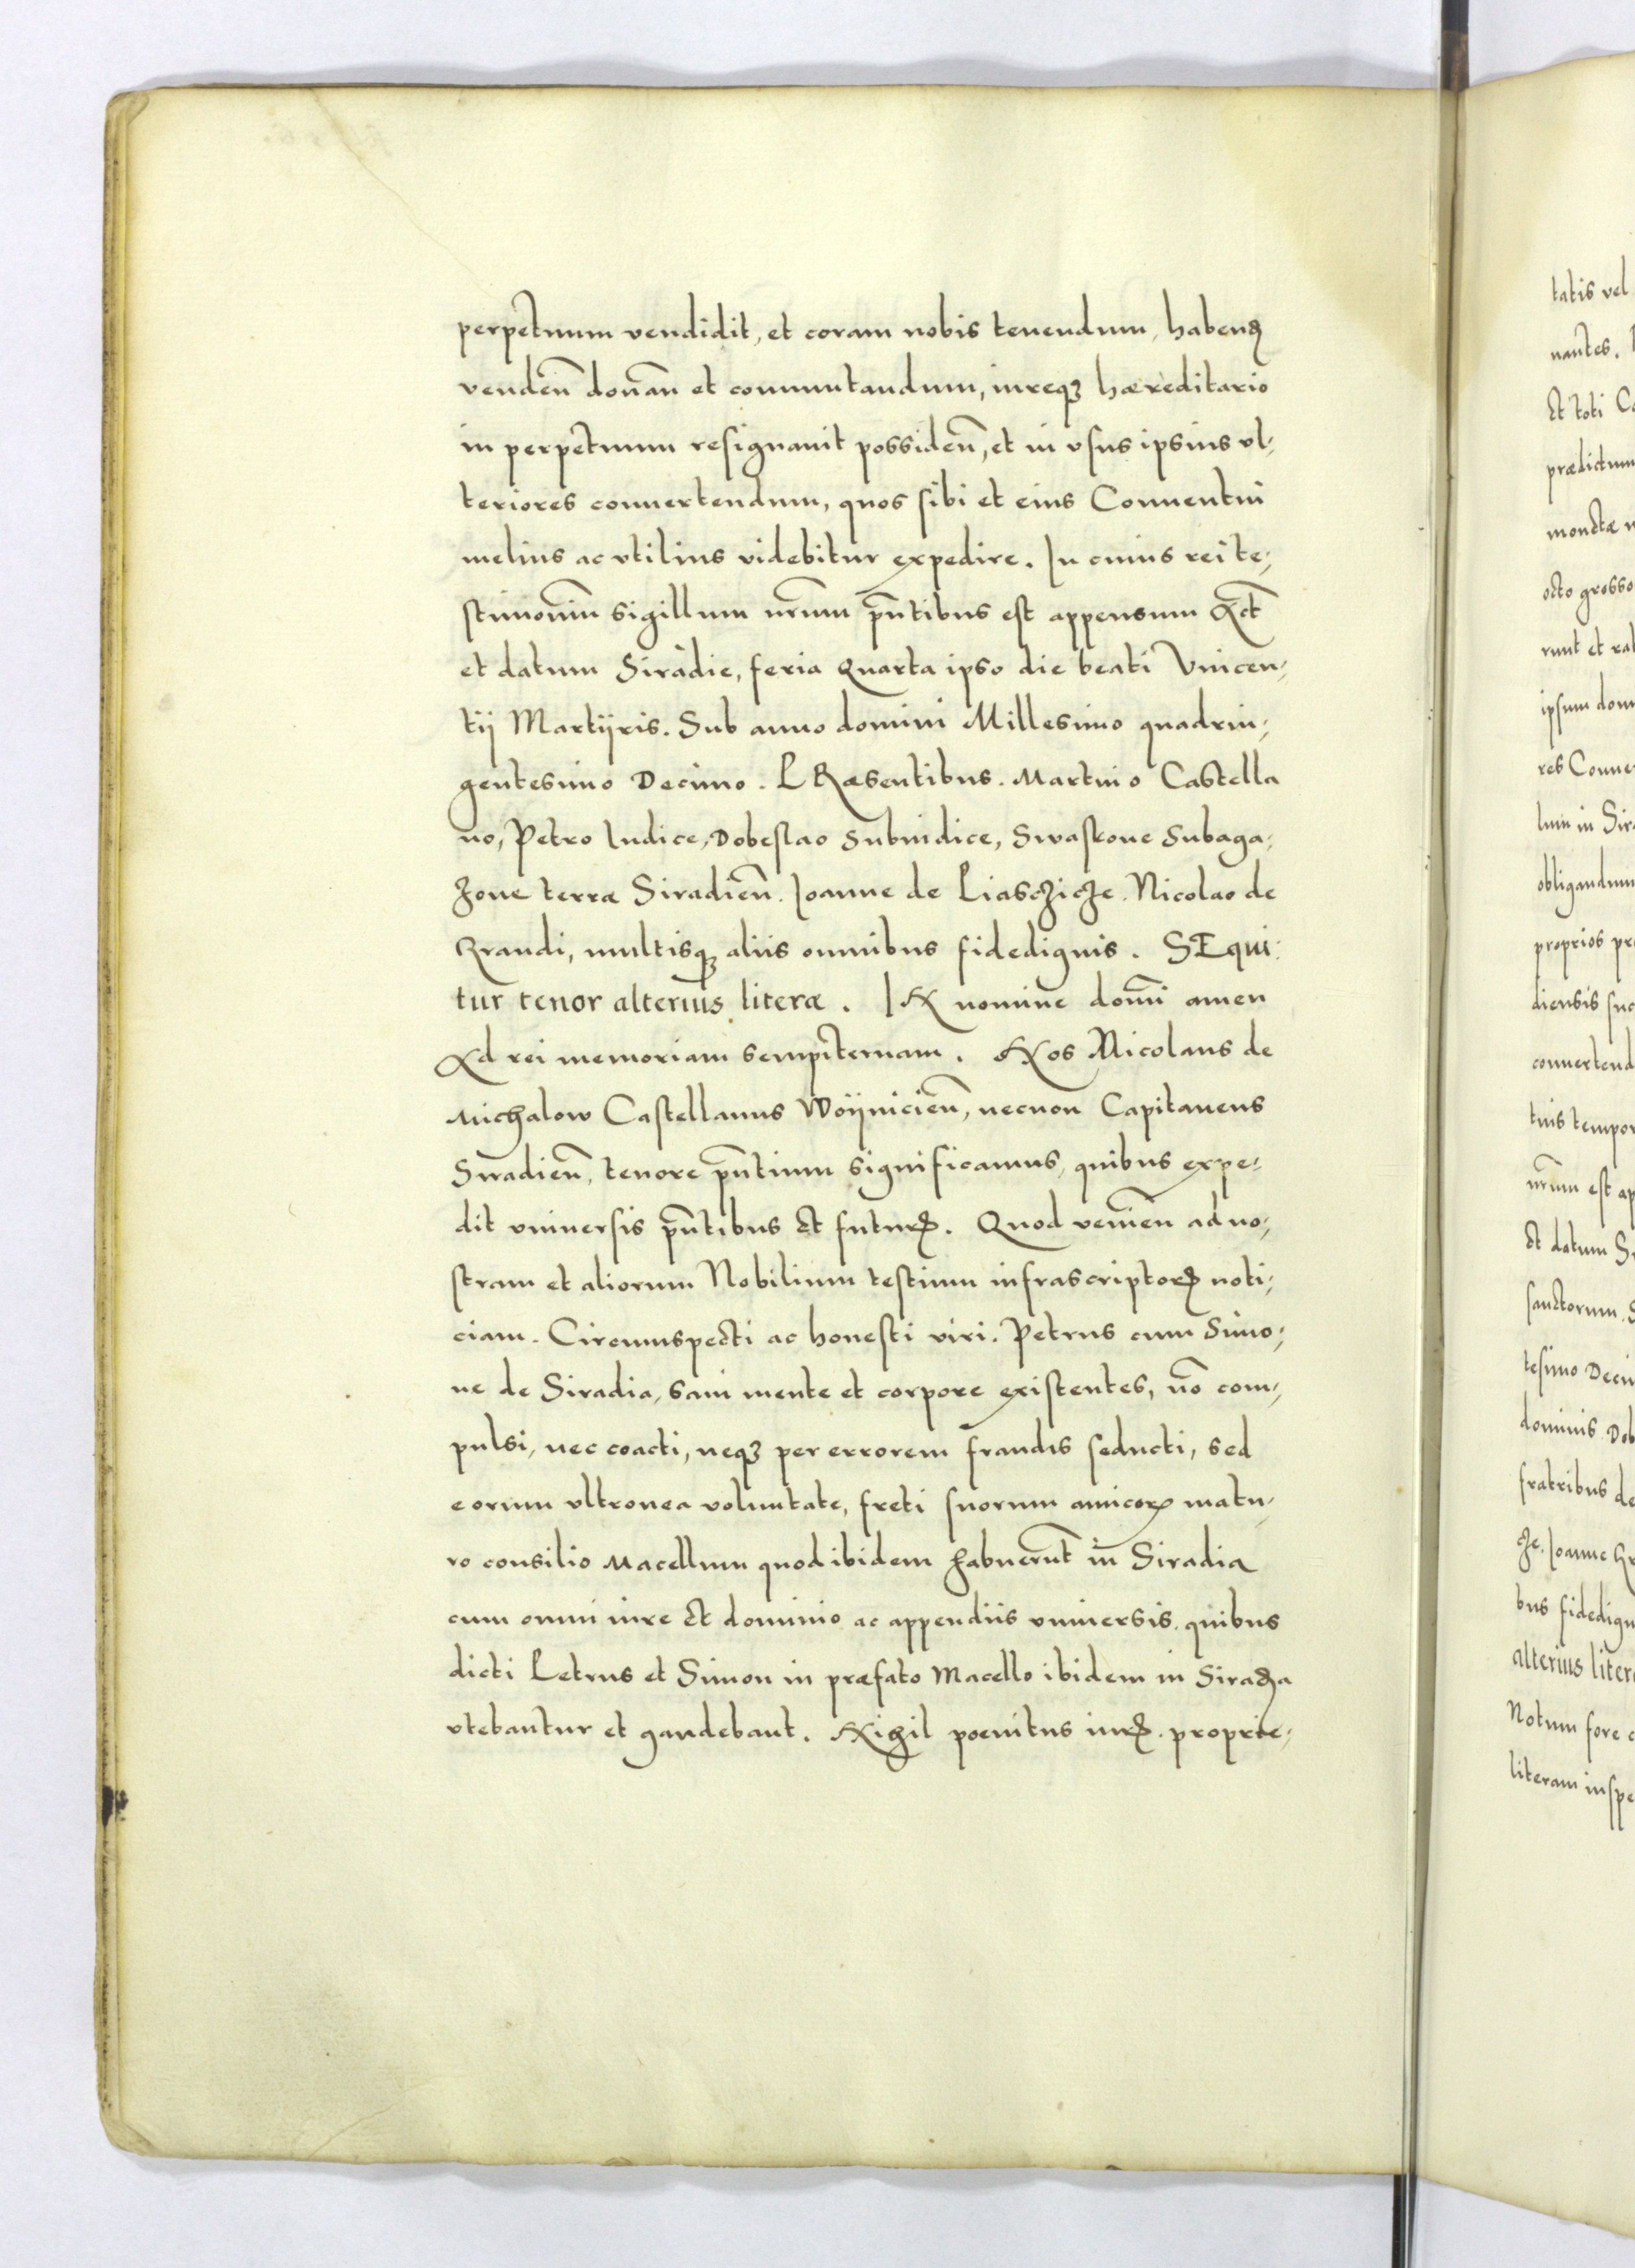 perpetuum vendidit, et coram nobis tenendum, habenꝺ
venden̄ donan̄ et commutandum, iureqꝫ hæreditario
in perpetuum resignauit possiden̄, et in vsus ipsius vl-
teriores conuertendum, quos sibi et eius Conuentui
melius ac vtilius videbitur expedire. In cuius rei te-
stimoniū sigillum nr̄um pn̄tibus est appensum Act̄
et datum Siradie, feria Quarta ipso die beati Vincen-
tij Martijris. Sub anno domini Millesimo quadrin-
gentesimo Decimo. PRæsentibus. Martino Castella
no, Petro Iudice, Dobeslao Subiudice, Swaskone Subaga-
zone terræ Siradien̄. Ioanne de Liasczicze. Nicolao de
Krandi, multisqꝫ aliis omnibus fidedignis. SEqui-
tur tenor alterius literæ. IN nomine domi̅ amen
Ad rei memoriam sempiternam. Nos Nicolaus de
Michalow Castellanus Woÿnicien̄, necnon Capitaneus
Siradien̄, tenore pn̄tium significamus, quibus expe-
dit vniuersis pn̄tibus et futuꝝ. Quod venien̄ ad no-
stram et aliorum Nobilium testium infrascriptoꝝ noti-
ciam. Circumspecti ac honesti viri. Petrus cum Simo-
ne de Siradia, sani mente et corpore existentes, no̅ com-
pulsi, nec coacti, neqꝫ per errorem fraudis seducti, sed
eorum vltronea voluntate, freti suorum amicoꝝ matu-
ro consilio Macellum quod ibidem habuerūt in Siradia
cum omni iure et dominio ac appendiis vniuersis quibus
dicti Petrus et Simon in præfato Macello ibidem in Siradia
vtebantur et gaudebant. Nihil poenitus iuꝝ. proprie-
tatis vel
nantes.
et toti Co
prædictum
monetæ n
octo grosso
runt et ra
ipsum dom
res Conue
lum in Sir
obligandum
proprios pr
diensis suc
conuertend
tuis tempor
nr̄um est ap
et datum S
sanctorum. S
tesimo Deci
dominis Dob
fratribus de
cze. Ioanne Kr
bus fidedign
alterius liter
Notum fore c
literam inspe